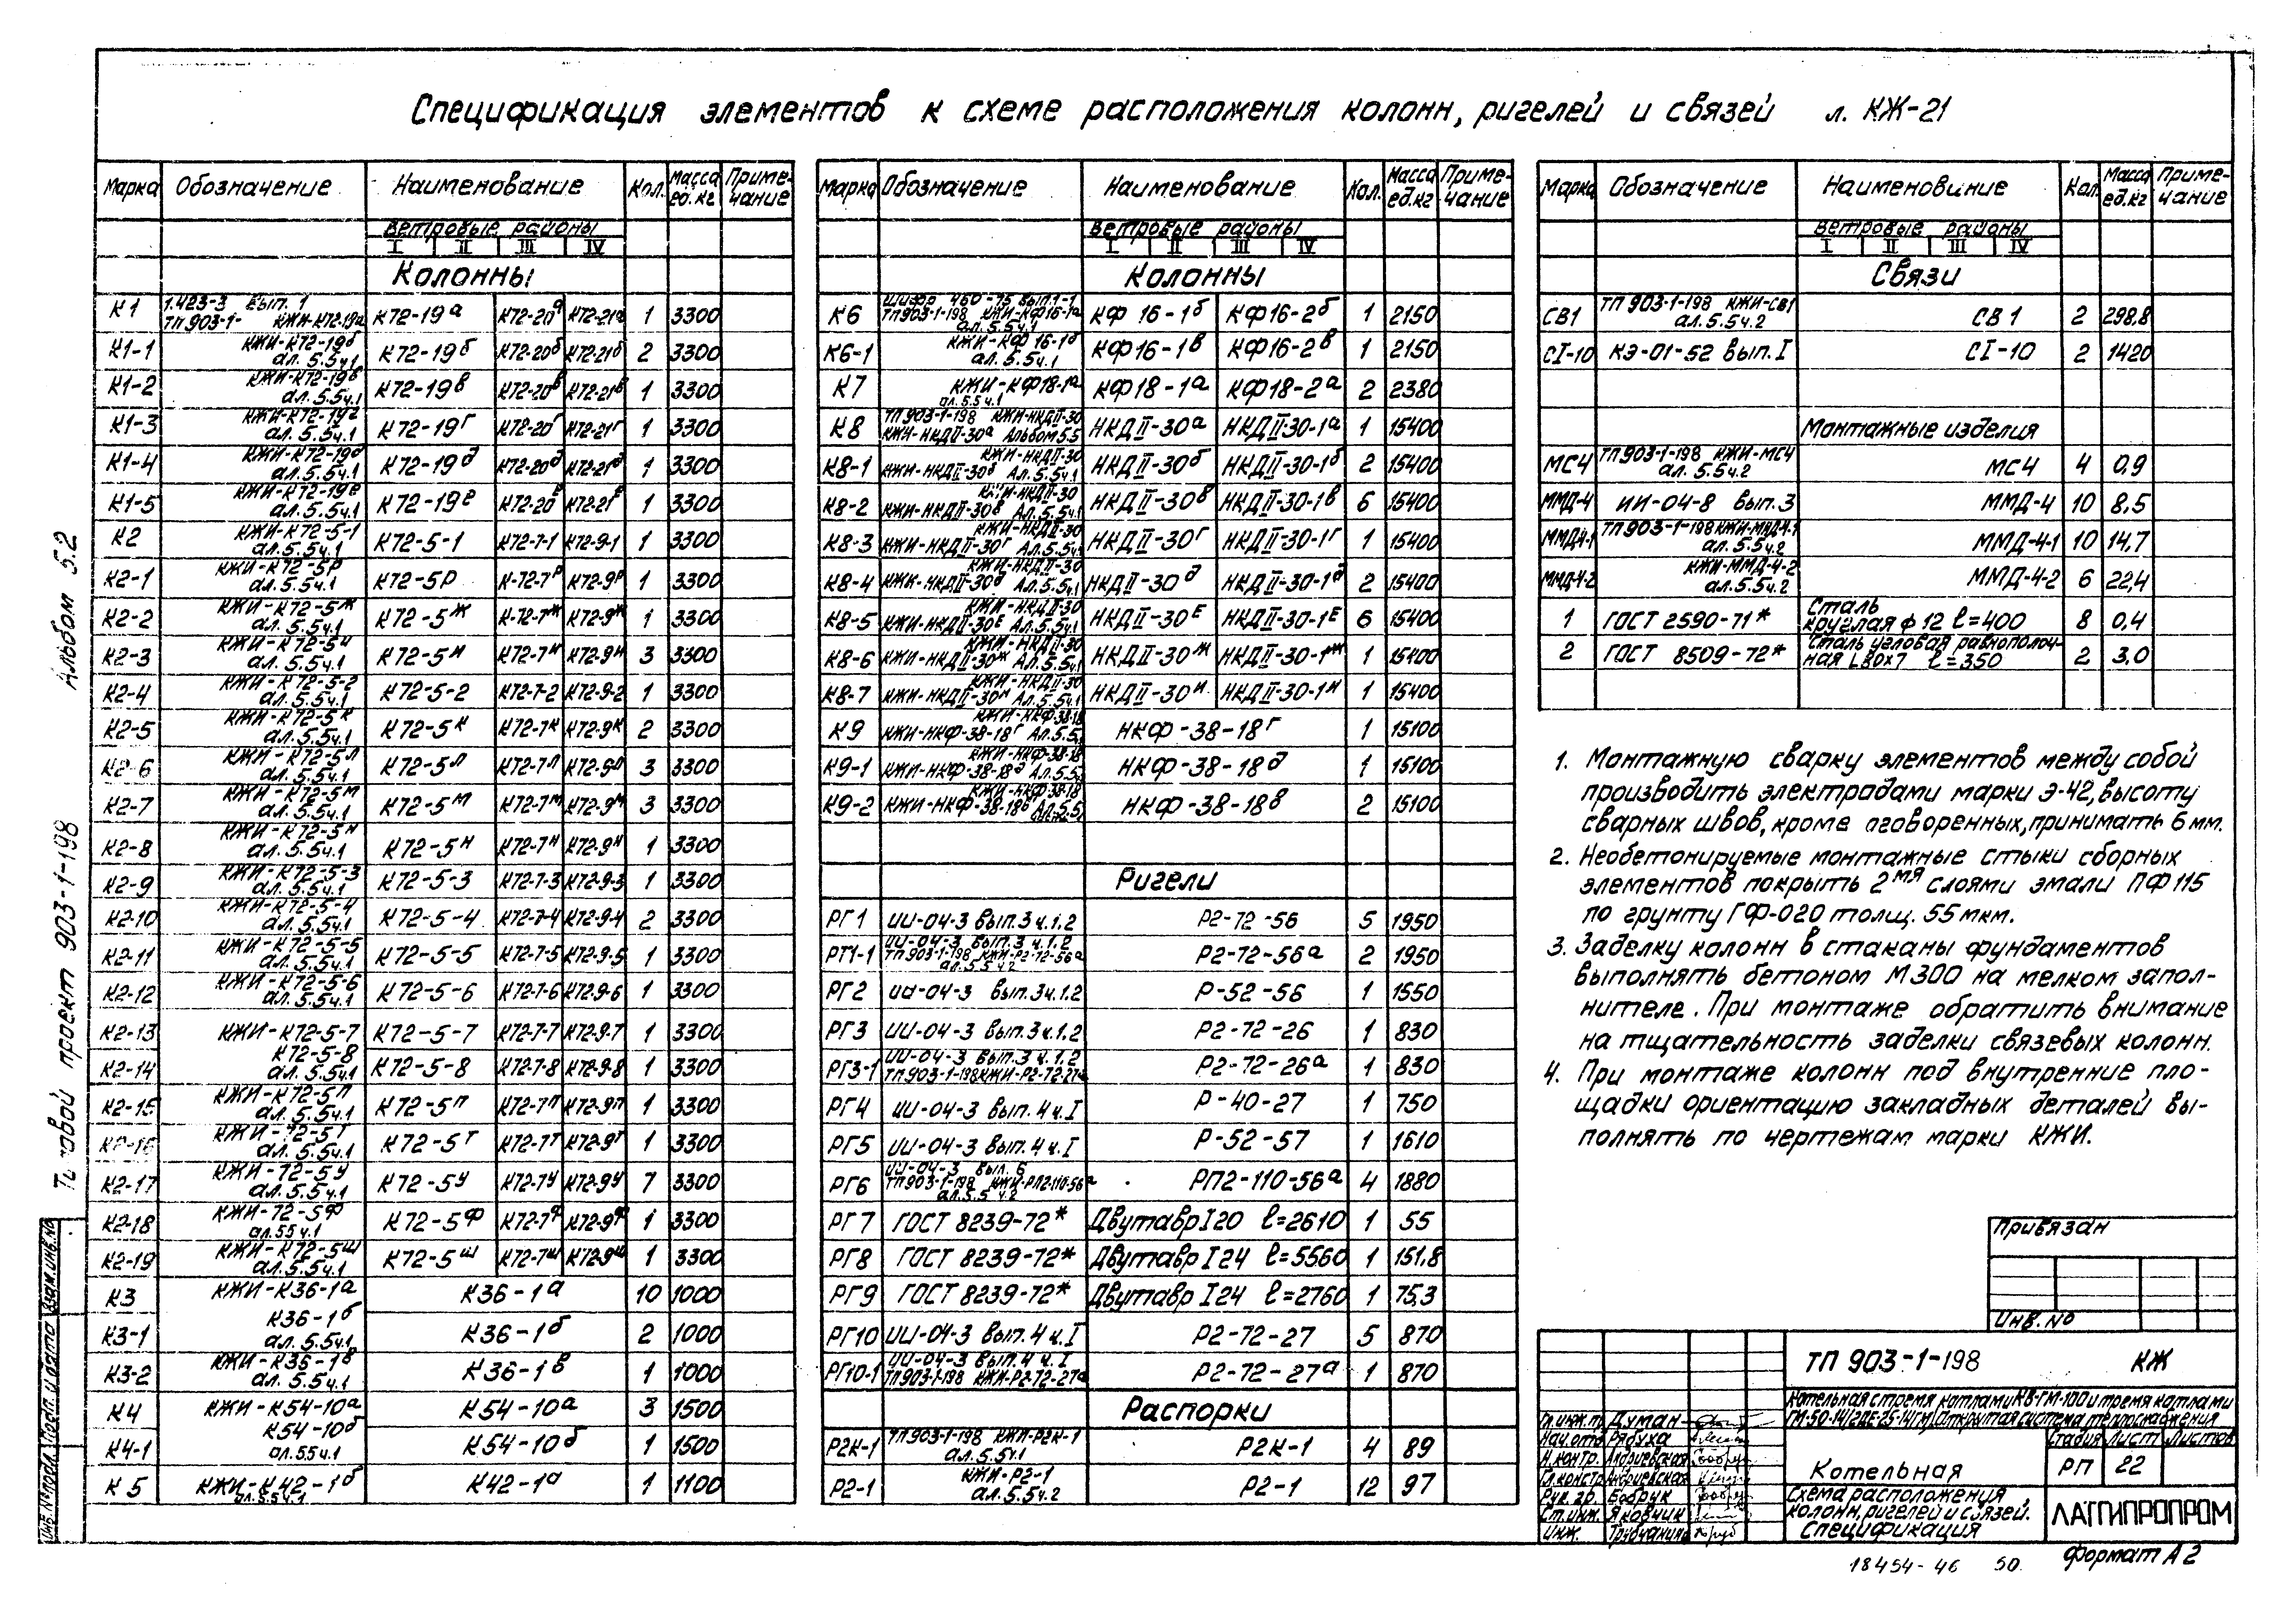 Спецификация элементов к схеме расположения колонн, ригелей и связей л. КЖ-21
Марка Обозначение Наименование Кол. Масса ед.кг Примечание
Ветровые районы
I II III IV
Колонны
К1 1.423-3 вып.1 ТП903-1- КЖИ-К72-19а К72-19а К72-20а К72-21а 1 3300
К1-1 КЖИ-К72-19б ал.5.5ч.1 К72-19б К72-20б К72-21б 2 3300
К1-2 КЖИ-К72-19в ал.5.5ч.1 К72-19в К72-20в К72-21в 1 3300
К1-3 КЖИ-К72-19г ал.5.5ч.1 К72-19г К72-20г К72-21г 1 3300
К1-4 КЖИ-К72-19д ал.5.5ч.1 К72-19д К72-20д К72-21д 1 3300
К1-5 КЖИ-К72-19е ал.5.5ч.1 К72-19е К72-20е К72-21е 1 3300
К2 КЖИ-К72-5-1 ал.5.5ч.1 К72-5-1 К72-7-1 К72-9-1 1 3300
К2-1 КЖИ-К72-5р ал.5.5ч.1 К72-5р К-72-7р К72-9р 1 3300
К2-2 КЖИ-К72-5ж ал.5.5ч.1 К72-5ж К-72-7ж К72-9ж 1 3300
К2-3 КЖИ-К72-5и ал.5.5ч.1 К72-5и К72-7и К72-9и 3 3300
К2-4 КЖИ-К72-5-2 ал.5.5ч.1 К72-5-2 К72-7-2 К72-9-2 1 3300
К2-5 КЖИ-К72-5к ал.5.5ч.1 К72-5к К72-7к К72-9к 2 3300
К2-6 КЖИ-К72-5л ал.5.5ч.1 К72-5л К72-7л К72-9л 3 3300
К2-7 КЖИ-К72-5м ал.5.5ч.1 К72-5м К72-7м К72-9м 3 3300
К2-8 КЖИ-К72-5н ал.5.5ч.1 К72-5н К72-7н К72-9н 1 3300
К2-9 КЖИ-К72-5-3 ал.5.5ч.1 К72-5-3 К72-7-3 К72-9-3 1 3300
К2-10 КЖИ-К72-5-4 ал.5.5ч.1 К72-5-4 К72-7-4 К72-9-4 2 3300
К2-11 КЖИ-К72-5-5 ал.5.5ч.1 К72-5-5 К72-7-5 К72-9-5 1 3300
К2-12 КЖИ-К72-5-6 ал.5.5ч.1 К72-5-6 К72-7-6 К72-9-6 1 3300
К2-13 КЖИ-К72-5-7 К72-5-7 К72-7-7 К72-9-7 1 3300
К2-14 К72-5-8 ал.5.5ч.1 К72-5-8 К72-7-8 К72-9-8 1 3300
К2-15 КЖИ-К72-5п ал.5.5ч.1 К72-5п К72-7п К72-9п 1 3300
К2-16 КЖИ-72-5т ал.5.5ч.1 К72-5т К72-7т К72-9т 1 3300
К2-17 КЖИ-72-5у ал.5.5ч.1 К72-5у К72-7у К72-9у 7 3300
К2-18 КЖИ-72-5ф ал.55ч.1 К72-5ф К72-7ф К72-9ф 1 3300
К2-19 КЖИ-К72-5ш ал.5.5ч.1 К72-5ш К72-7ш К72-9ш 1 3300
К3 КЖИ-К36-1а К36-1а 10 1000
К3-1 К36-1б ал.5.5ч.1 К36-1б 2 1000
К3-2 КЖИ-К36-1в ал.5.5ч.1 К36-1в 1 1000
К4 КЖИ-К54-10а К54-10а 3 1500
К4-1 К54-10б ал.55ч.1 К54-10б 1 1500
К5 КЖИ-К42-1б ал.5.5ч.1 К42-1а 1 1100
Марка Обозначение Наименование Кол. Масса ед.кг Примечание
Ветровые районы
I II III IV
Колонны
К6 Шифр 460-75 вып.1-1 ТП903-1-198 КЖИ-КФ16-1а ал.5.5ч.1 КФ 16-1б КФ16-2б 1 2150
К6-1 КЖИ-КФ16-1б ал.5.5ч.1 КФ16-1в КФ16-2в 1 2150
К7 КЖИ-КФ18-1а ал.5.5ч.1 КФ18-1а КФ18-2а 2 2380
К8 ТП903-1-198 КЖИ-НКДII-30 КЖИ-НКДII-30а Альбом5.5 НКДII-30а НКДII-30-1а 1 15400
К8-1 КЖИ-НКДII-30 КЖИ-НКДII-30б Ал.5.5ч.1 НКДII-30б НКДII-30-1б 2 15400
К8-2 КЖИ-НКДII-30 КЖИ-НКДII-30в Ал.5.5ч.1 НКДII-30в НКДII-30-1в 6 15400
К8-3 КЖИ-НКДII-30 КЖИ-НКДII-30г Ал.5.5ч.1 НКДII-30г НКДII-30-1г 1 15400
К8-4 КЖИ-НКДII-30 КЖИ-НКДII-30д Ал.5.5ч.1 НКДII-30д НКДII-30-1д 2 15400
К8-5 КЖИ-НКДII-30 КЖИ-НКДII-30Е Ал.5.5ч.1 НКДII-30Е НКДII-30-1Е 6 15400
К8-6 КЖИ-НКДII-30 КЖИ-НКДII-30ж Ал.5.5ч.1 НКДII-30ж НКДII-30-1ж 1 15400
К8-7 КЖИ-НКДII-30 КЖИ-НКДII-30и Ал.5.5ч.1 НКДII-30и НКДII-30-1и 1 15400
К9 КЖИ-НКФ-38-18 КЖИ-НКФ-38-18г Ал.5.5 НКФ-38-18г 1 15100
К9-1 КЖИ-НКФ-38-18 КЖИ-НКФ-38-18д Ал.5.5 НКФ-38-18д 1 15100
К9-2 КЖИ-НКФ-38-18 КЖИ-НКФ-38-18в Ал.5.5 НКФ-38-18в 2 15100
Ригели
РГ1 ИИ-04-3 вып.3ч.1.2 Р2-72-56 5 1950
РГ1-1 ИИ-04-3 вып.3 ч.1.2 ТП903-1-198 КЖИ-Р2-72-56а ал.5.5ч.2 Р2-72-56а 2 1950
РГ2 ИИ-04-3 вып.3ч.1.2 Р-52-56 1 1550
РГ3 ИИ-04-3 вып.3ч.1.2 Р2-72-26 1 830
РГ3-1 ИИ-04-3 вып.3 ч.1.2 ТП903-1-198КЖИ-Р2-72-27а Р2-72-26а 1 830
РГ4 ИИ-04-3 вып.4ч.I Р-40-27 1 750
РГ5 ИИ-04-3 вып.4ч.I Р-52-57 1 1610
РГ6 ИИ-04-3 вып.6 ТП903-1-198 КЖИ-РП2-110-56а ал.5.5 ч.2 РП2-110-56а 4 1880
РГ7 ГОСТ 8239-72* Двутавр I20 ℓ=2610 1 55
РГ8 ГОСТ 8239-72* Двутавр I24 ℓ=5560 1 151,8
РГ9 ГОСТ 8239-72* Двутавр I24 ℓ=2760 1 75,3
РГ10 ИИ-04-3 вып.4ч.I Р2-72-27 5 870
РГ10-1 ИИ-04-3 вып.4 ч.I ТП903-1-198 КЖИ-Р2-72-27а Р2-72-27а 1 870
Распорки
Р2К-1 ТП903-1-198 КЖИ-Р2К-1 ал.5.5ч.1 Р2К-1 4 89
Р2-1 КЖИ-Р2-1 ал.5.5ч.2 Р2-1 12 97
Марка Обозначение Наименование Кол. Масса ед.кг Примечание
Ветровые районы
I II III IV
Связи
СВ1 ТП903-1-198 КЖИ-СВ1 ал.5.5ч.2 СВ1 2 298,8
СI-10 КЭ-01-52 вып.I СI-10 2 1420
Монтажные изделия
МС4 ТП903-1-198 КЖИ-МС4 ал.5.5ч.2 МС4 4 0,9
ММД-4 ИИ-04-8 вып.3 ММД-4 10 8,5
ММД4-1 ТП903-1-198КЖИ-ММД4-1 ал.5.5ч.2 ММД-4-1 10 14,7
ММД-4-2 КЖИ-ММД-4-2 ал.5.5ч.2 ММД-4-2 6 22,4
1 ГОСТ 2590-71* Сталь круглая ф12 ℓ=400 8 0,4
2 ГОСТ 8509-72* Сталь угловая равнополочная L80х7 ℓ=350 2 3,0
1. Монтажную сварку элементов между собой
производить электродами марки Э-42, высоту
сварных швов, кроме оговоренных, принимать 6 мм.
2. Необетонируемые монтажные стыки сборных
элементов покрыть 2мя слоями эмали ПФ115
по грунту ГФ-020 толщ. 55 мкм.
3. Заделку колонн в стаканы фундаментов
выполнять бетоном М300 на мелком запол-
нителе. При монтаже обратить внимание
на тщательность заделки связевых колонн.
4. При монтаже колонн под внутренние пло-
щадки ориентацию закладных деталей вы-
полнять по чертежам марки КЖИ.
Привязан
Инв.№
ТП 903-1-198 КЖ
Котельная с тремя котлами КВ-ГМ-100 и тремя котлами
ГМ-50-14/2ДЕ-25-14ГМ/.Открытая система теплоснабжения
Гл.инж.п. Думан
Нач.отд. Рябуха
Н.контр. Андриевская
Гл.констр. Андриевская
Рук.гр. Бобрук
Ст.инж. Яковчик
Инж.
Котельная
Стадия Лист Листов
РП 22
Схема расположения
колонн, ригелей и связей.
Спецификация
ЛАТГИПРОПРОМ
18454-46 50
Формат А2
Альбом 5.2
Типовой проект 903-1-198
Инв.№подл. Подп. и дата Взам.инв.№